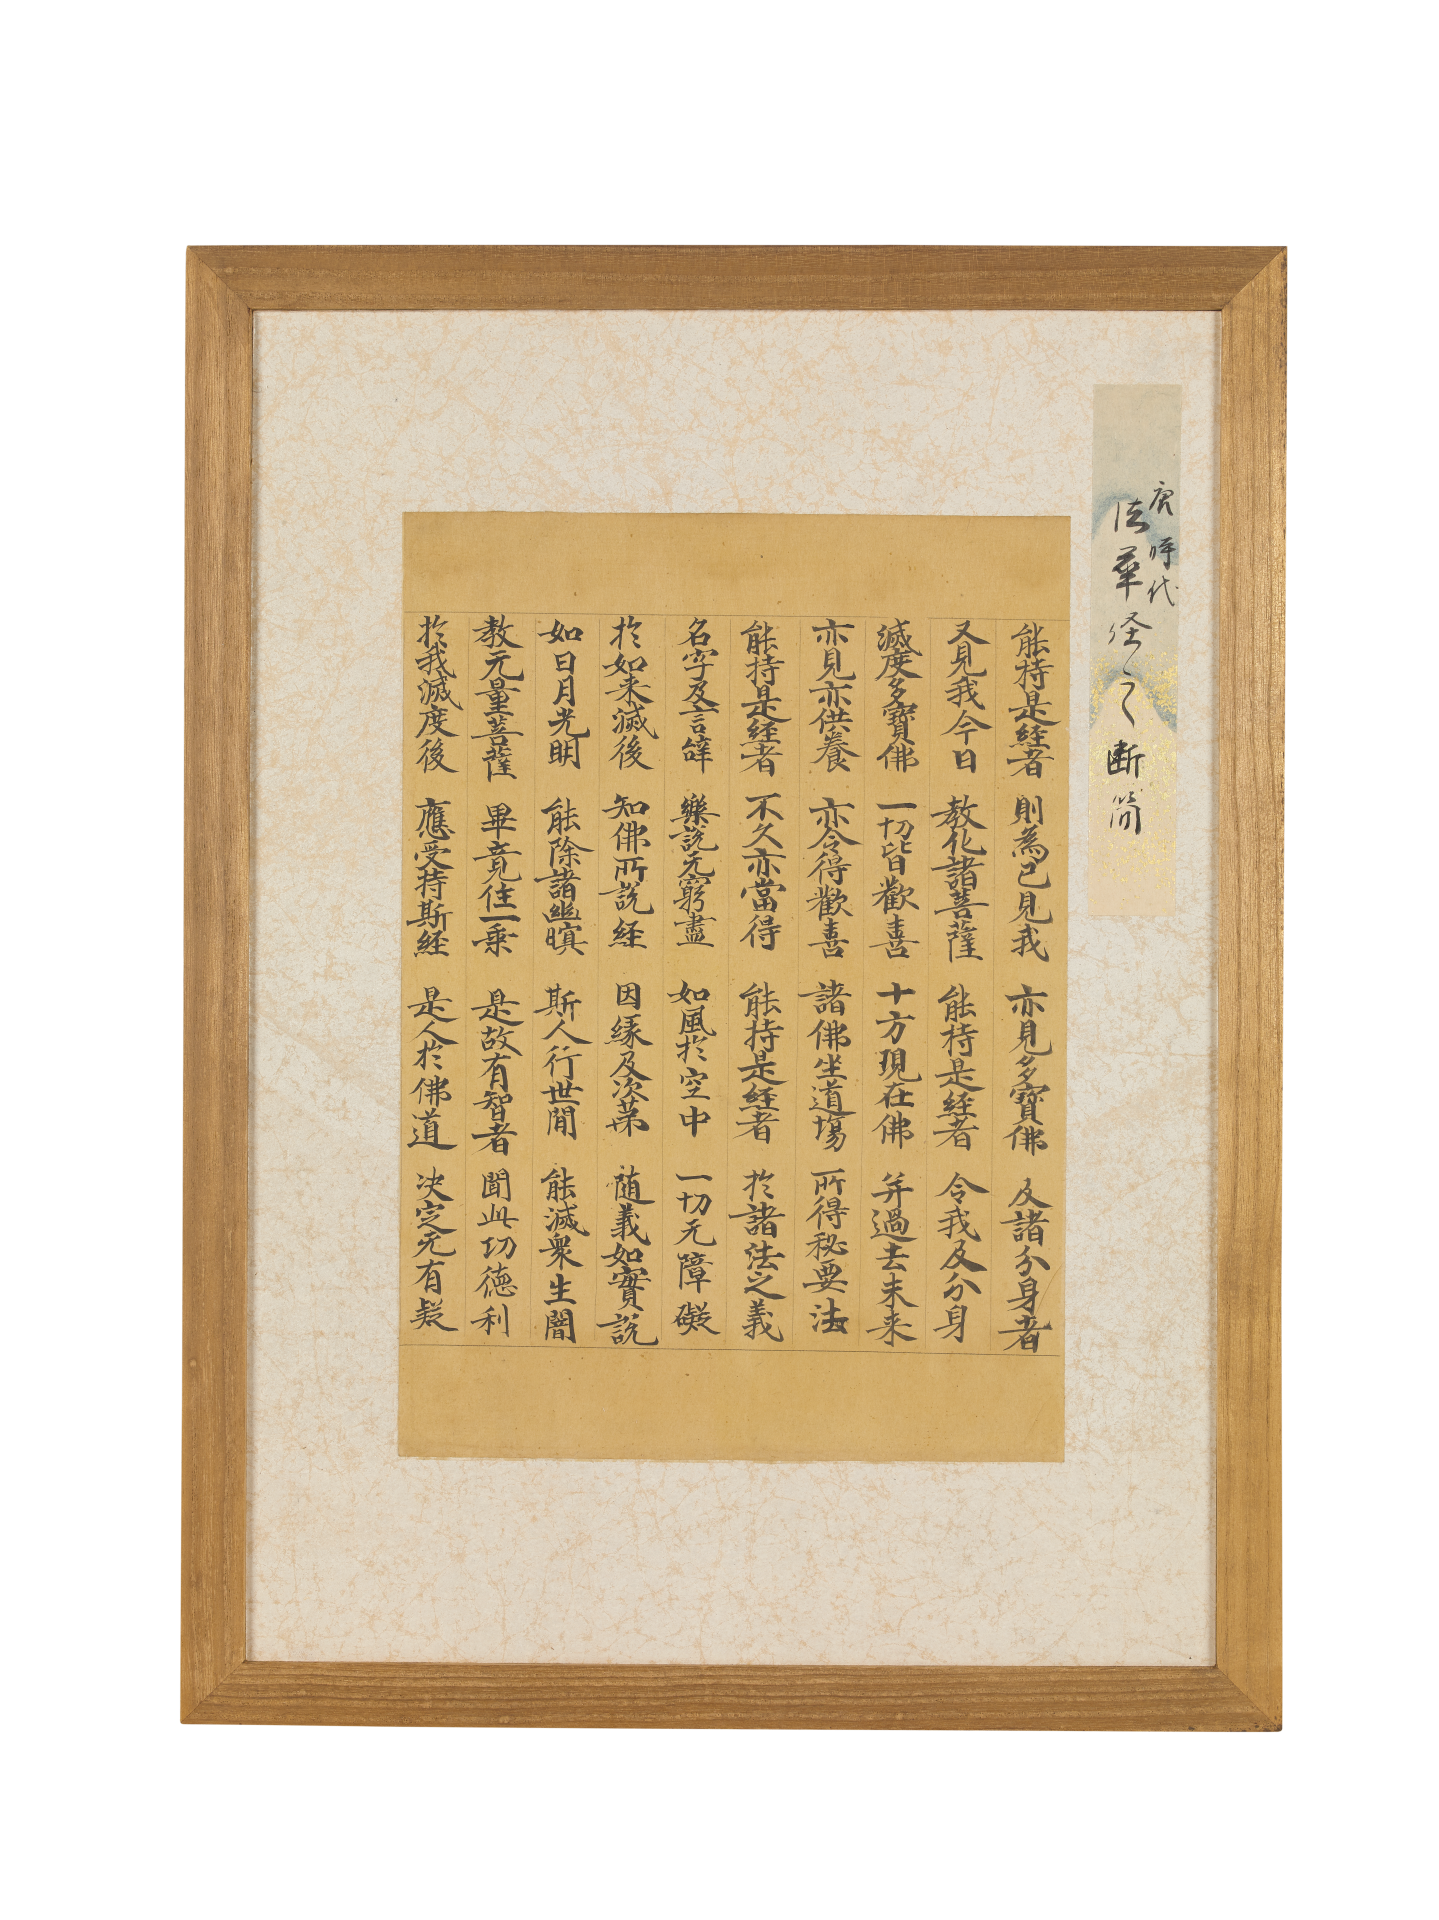 唐時代
法華経之断簡
能持是経者 則為已見我 亦見多寶佛 及諸分身者
又見我今日 教化諸菩薩 能持是経者 令我及分身
滅度多寶佛 一切皆歡喜 十方現在佛 并過去未来
亦見亦供養 亦令得歡喜 諸佛坐道場 所得秘要法
能持是経者 不久亦當得 能持是経者 於諸法之義
名字及言辝 樂說无窮盡 如風於空中 一切无障礙
於如来滅後 知佛所說経 因縁及次苐 随義如實說
如日月光明 能除諸幽暝 斯人行世間 能滅衆生闇
教元量菩薩 畢竟住一乗 是故有智者 聞此切徳利
於我滅度後 應受持斯経 是人於佛道 决定无有疑